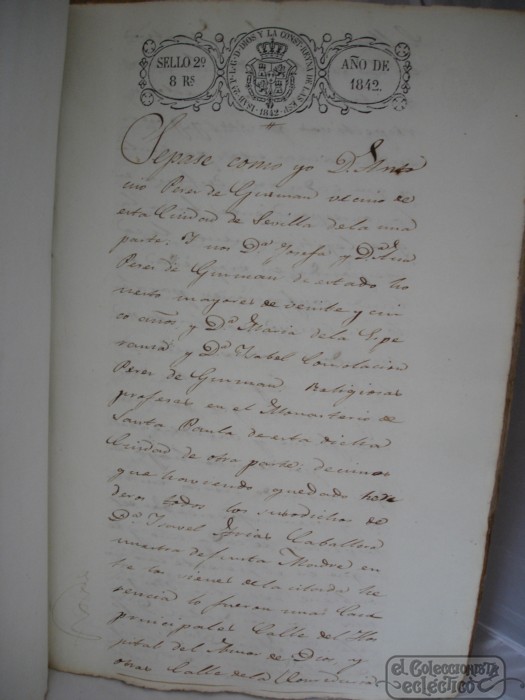 SELLO 2º
8 RS
ISAB. 2ª P. L. G. D. DIOS Y LA CONST. REYNA DE LAS ESP.
1842
AÑO DE
1842.
Sepase como yo Dn. Anto
nio Perez de Guzman vecino de
esta Ciudad de Sevilla de la una
parte. Y nos Dª Josefa y Dª Ana
Perez de Guzman de estado ho
nesto mayores de veinte y cin
co años, y Dª Maria de la Espe
ranza y Dª Ysabel Consolacion
Perez de Guzman Religiosas
profesas en el Monasterio de
Santa Paula de esta dicha
Ciudad de otra parte; decimos
que haviendo quedado here
deros todos los susodichos de
Dª Ysavel Arias Caballero
nuestra defunta Madre en
tre los vienes de la citada he
rencia lo fueron unas Casas
principales Calle del Hos
pital del Amor de Dios, y
otras Calle de la
el Coleccionista
ecléctico